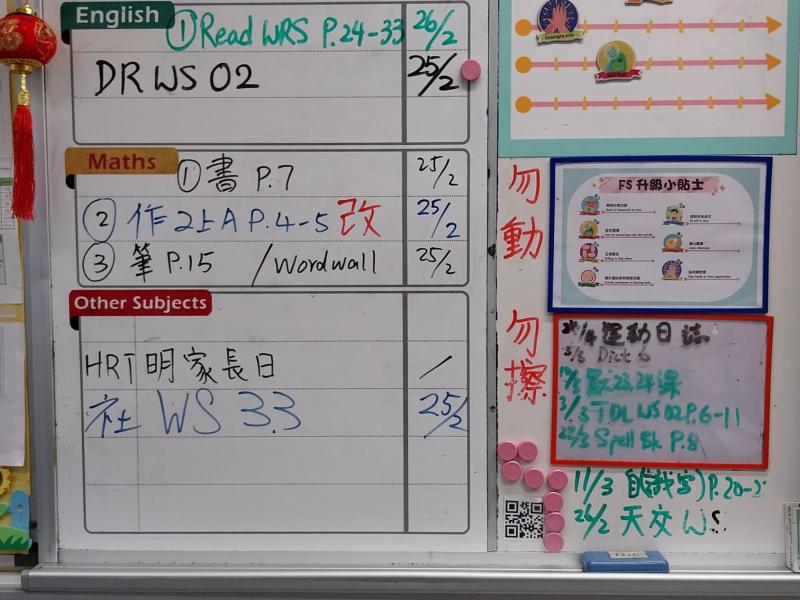 English
①Read WRS P.24-33 26/2
DRWS 02 25/2
Maths
①書 P.7 25/2
② 作 2上A P.4-5 改 25/2
③ 筆 P.15 /Wordwall 25/2
Other Subjects
HRT 明家長日 /
社 WS 3.3 25/2
勿動
勿擦
FS 升級小貼士
運動日誌
Dict 6
23,24課
3/3 TDL WS 02 P.6-11
Spell Bk P.8
11/3
26/2 天交 WS